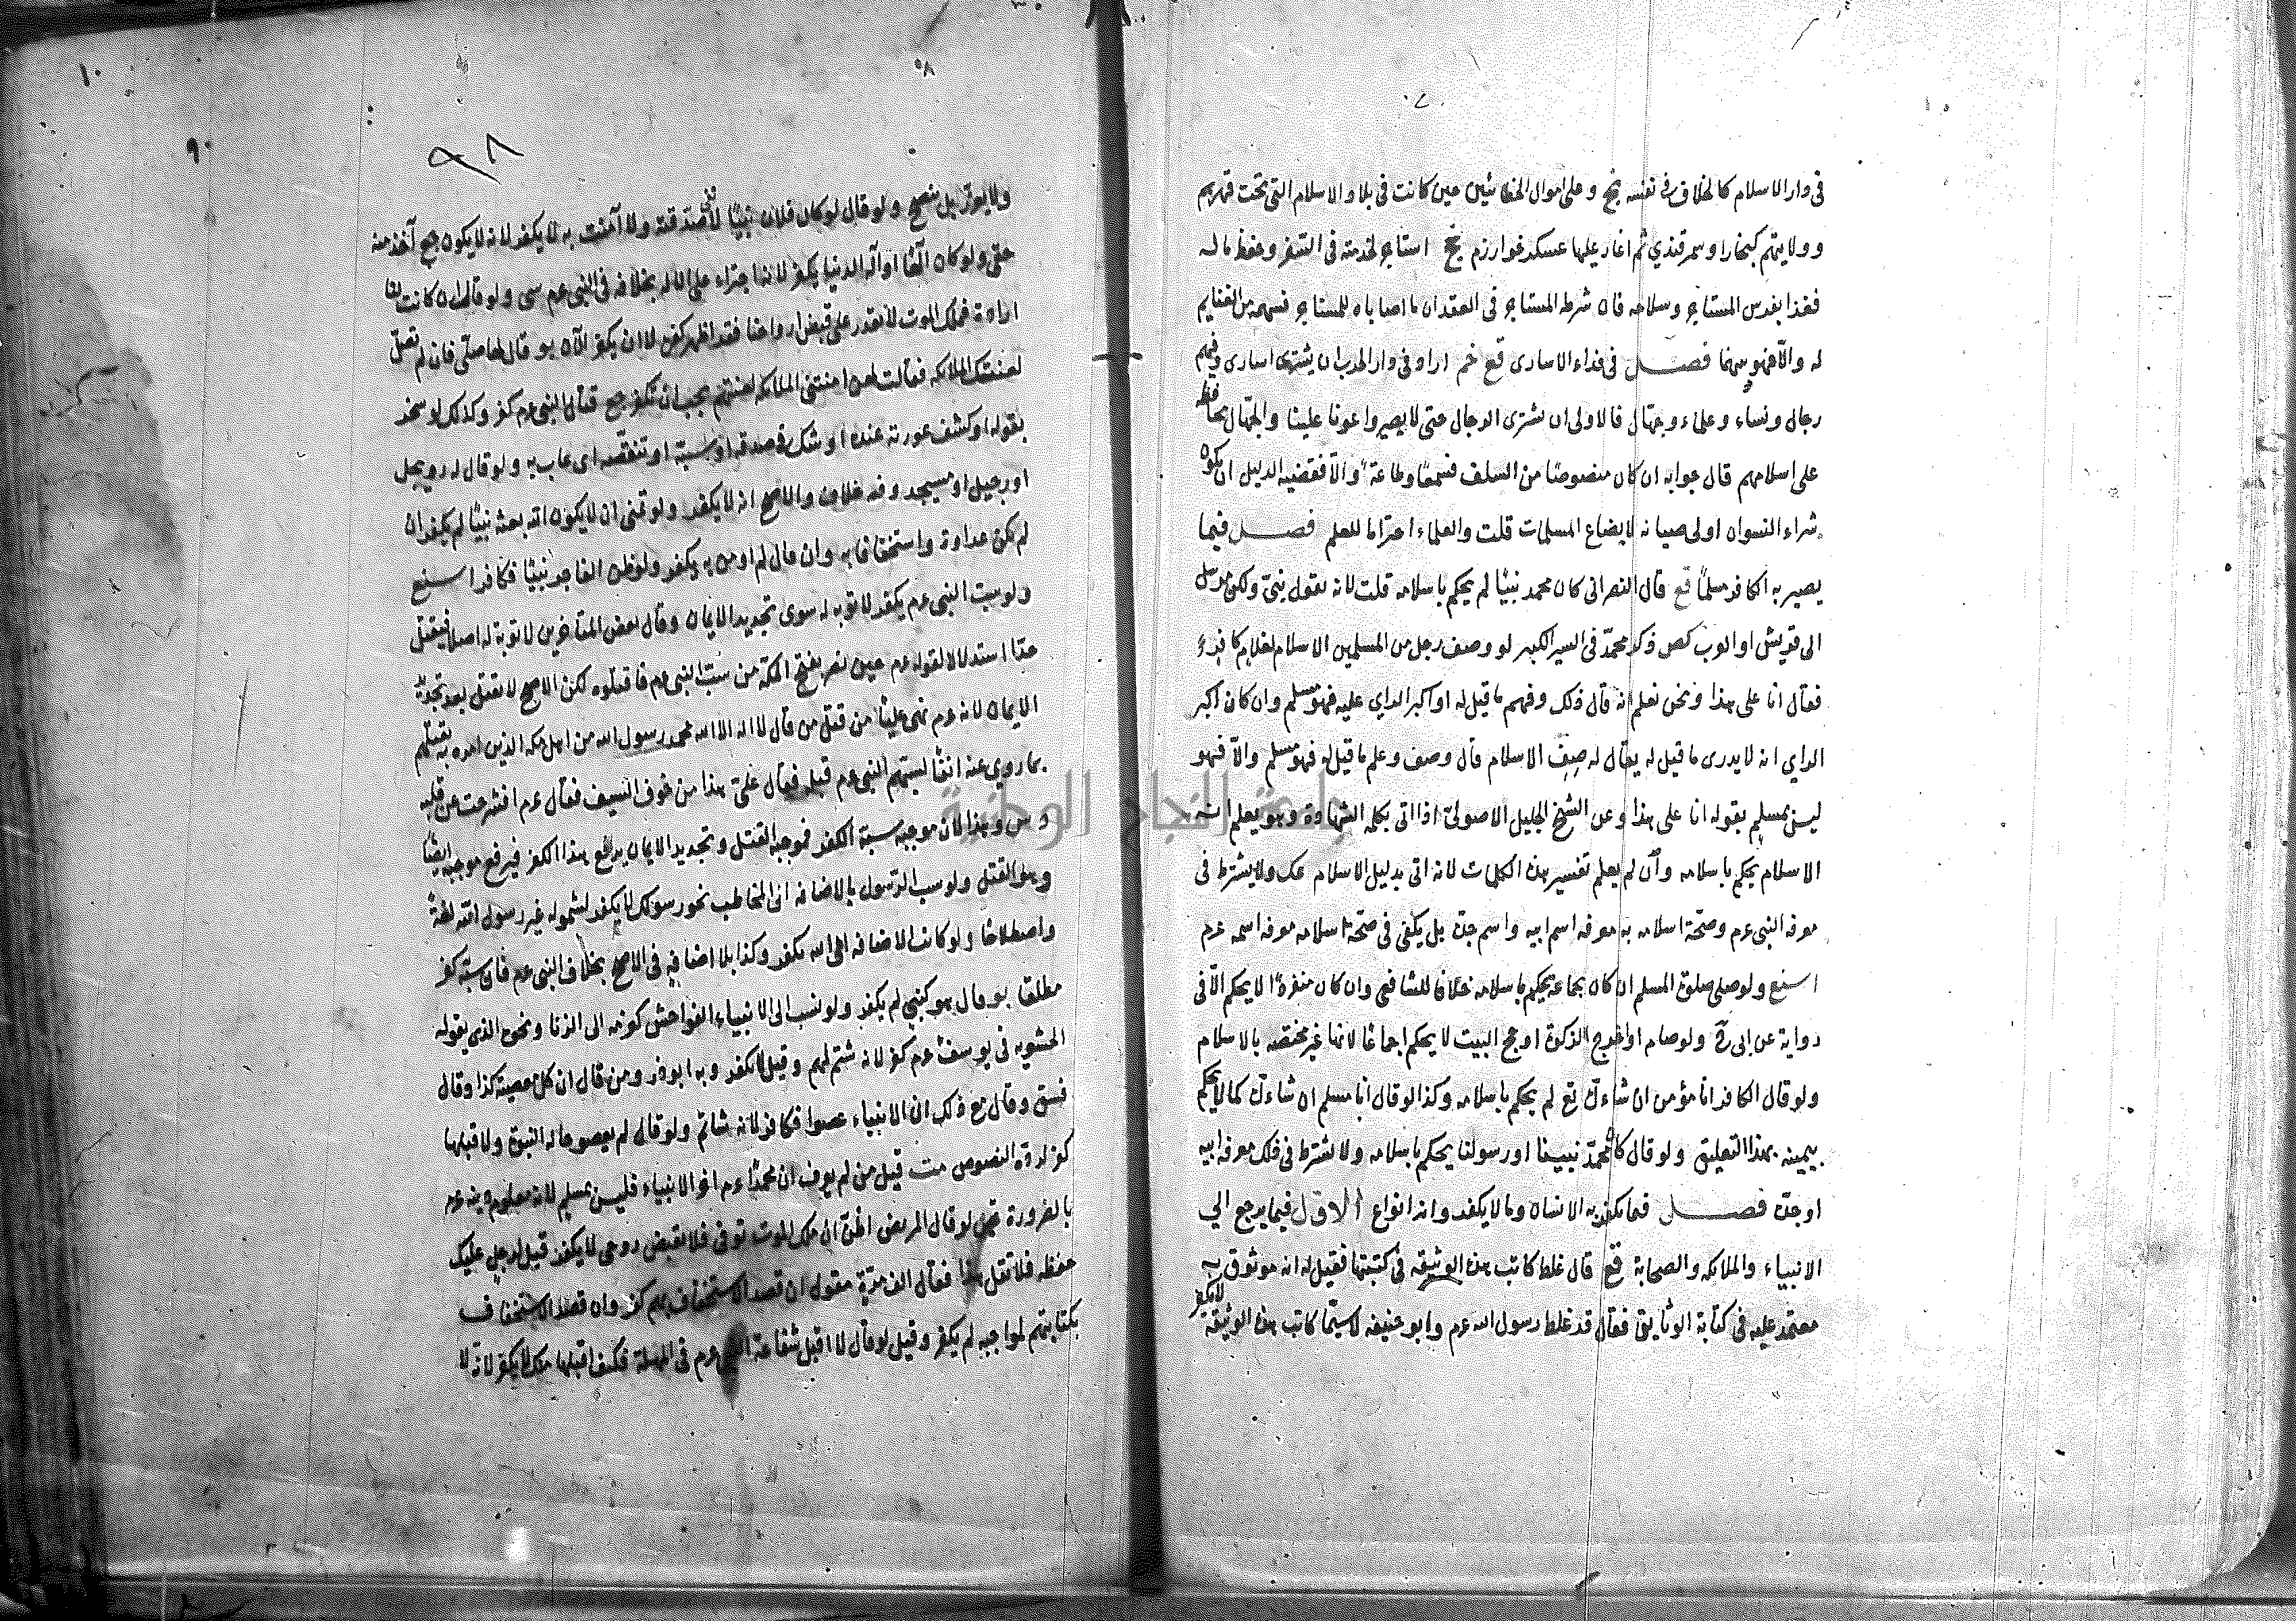 في دار الاسلام كالخلاف في نفسه بخ وعلى اموال الخطائيين حين كانت في بلاد الاسلام التي تحت قهرهم
وولايتهم كبخارا وسمرقندي ثم اغار عليها عسكر خوارزم بخ استاجر لخدمته في السفر وحفظ ماله
فغزا بفرس المستاجر وسلاحه فان شرط المستاجر في العقد ان ما اصابا للمستاجر فسهمه من الغنايم
له والا فهو بينهما فصل في فداء الاسارى قع خم اراد في دار الحرب ان يشترى اسارى وفيهم
رجال ونساء وعلماء وجهال فالاولى ان يشترى الرجال حتى لا يصيروا عونا علينا والجهال
على اسلامهم قال جوابه ان كان منصوصا من السلف فسمعا وطاعة والا فقضية الدليل ان يكون
شراء النسوان اولى صيانة لابضاع المسلمات قلت والعلماء احتراما للعلم فصل فيما
يصير به الكافر مسلما قع قال النصراني كان محمد نبيا لم يحكم باسلامه قلت لانه يقول نبي ولكن مرسل
الى قريش او العرب كص ذكر محمد في السير الكبير لو وصف رجل من المسلمين الاسلام لغلام كافر
فقال انا على هذا ونحن نعلم انه قال ذلك وفهم ما قيل له او اكبر الراي عليه فهو مسلم وان كان اكبر
الراي انه لا يدرى ما قيل له يقال له صف الاسلام قال وصف وعلم ما قيل له فهو مسلم والا فهو
ليس بمسلم بقوله انا على هذا وعن الشيخ الجليل الاصولي اذا اتى بكلمة الشهادة وهو يعلم انه
الاسلام يحكم باسلامه وان لم يعلم تفسير هذه الكلمات لانه اتى بدليل الاسلام عك ولا يشترط في
معرفة النبي عم وصحة اسلامه به معرفة اسم ابيه واسم جده بل يكفي في صحة اسلامه معرفة اسمه عم
اسنع ولو صلى صلوة المسلم ان كان بجماعة يحكم باسلامه خلافا للشافعي وان كان منفردا لا يحكم الا في
رواية عن ابي ح ولو صام او اخرج الزكوة او حج البيت لا يحكم اجماعا لانها غير مختصة بالاسلام
ولو قال الكافر انا مؤمن ان شاءك قع لم يحكم باسلامه وكذا لو قال انا مسلم ان شاءك كما لا يحكم
بيمينه بهذا التعليق ولو قال كان محمد نبينا او رسولنا يحكم باسلامه ولا يشترط في ذلك معرفة ابيه
او جده فصل فيما يكفر به الانسان وما لا يكفر وانه انواع الاول فيما يرجع الي
الانبياء والملائكة والصحابة قع قال غلط كاتب هذه الوثيقة في كتبتها فقيل له انه موثوق به
معتمد عليه في كتابة الوثايق فقال قد غلط رسول الله عم وابو حنيفة لا سيما كاتب هذه الوثيقة
لا يكفر
٩٨
ولا يعزر بل ينصح ولو قال لو كان فلان نبيا لا صدقته ولا آمنت به لا يكفر لانه لا يكون
حتى ولو كان الها او آله الدنيا يكفر لانه اجتراء على الله بخلافه في النبي عم سى ولو قال ان كانت لنا
ارادة فملك الموت لا يقدر على قبض ارواحنا فقد اظهر كفره الا ان يكفر الآن بو قال لها صلي فان لم تصلي
لعنتك الملائكة فقالت لعن امنتني الملائكة لعنتهم يجب ان تكفر جع قتال النبي عم كفر وكذلك لو سخر
بقوله او كشف عورته عنده او شك في صدقه او سبه او تنقصه اى عاب به ولو قال له رويجل
او رجيل او مسيجد وفيه خلاف والاصح انه لا يكفر ولو تمنى ان لا يكون الله بعثه نبيا لم يكفر ان
لم يكن عداوة واستخفافا به وان قال لم اومن به يكفر ولو ظن الفاجر نبيا فكافر اسنع
ولو سب النبي عم يكفر لا توبة له سوى تجديد الايمان وقال بعض المتاخرين لا توبة له اصلا فيقتل
حدا استدلالا لقوله عم حين نصر بفتح المكة من سب النبي عم فاقتلوه لكن الاصح لا يقتل بعد تجديد
الايمان لانه عم نهى عليا من قتل من قال لا اله الا الله محمد رسول الله من اهل مكة الذين امره بقتلهم
بما روي عنه انفا لسبهم النبي عم قبله فقال علي هذا من خوف السيف فقال عم افشرحت عن قلبه
وهذا لان موجبه سبة الكفر فموجبه القتل وتجديد الايمان يرفع هذا الكفر فيرفع موجبه ايضا
وهو القتل ولو سب الرسول بالاضافة الى المخاطب نحو رسولك لا يكفر لشموله غير رسول الله لغة
واصطلاحا ولو كانت الاضافة الى الله يكفر وكذا بلا اضافة في الاصح بخلاف النبي عم فان سبه كفر
مطلقا بو قال هو كنبي لم يكفر ولو نسب الى الانبياء الفواحش كعزمه الى الزنا ونحوه الذي يقوله
الحشوية في يوسف عم كفر لانه شتم لهم وقيل لا يكفر وبه ابوذر ومن قال ان كل معصية كذا وقال
فسق وقال مع ذلك ان الانبياء عصوا فكافر لانه شاتم ولو قال لم يعصوا حالة النبوة ولا قبلها
كفر لرده النصوص مت قيل من لم يعرف ان محمدا عم اخر الانبياء فليس بمسلم لانه معلوم دينه عم
بالضرورة ولو قال المريض الى ملك الموت توفى فلا يقبض روحى لا يكفر قيل لرجل عليك
حفظه فلا تقل هذا فقال الف مرة مقول ان قصد الاستخفاف بهم كفر وان قصد الاستخفاف
بكتابتهم لمواجبه لم يكفر وقيل لو قال لا اقبل شفاعة النبي عم في المهلة فكيف اقبلها منك لا يكفر لانه لا